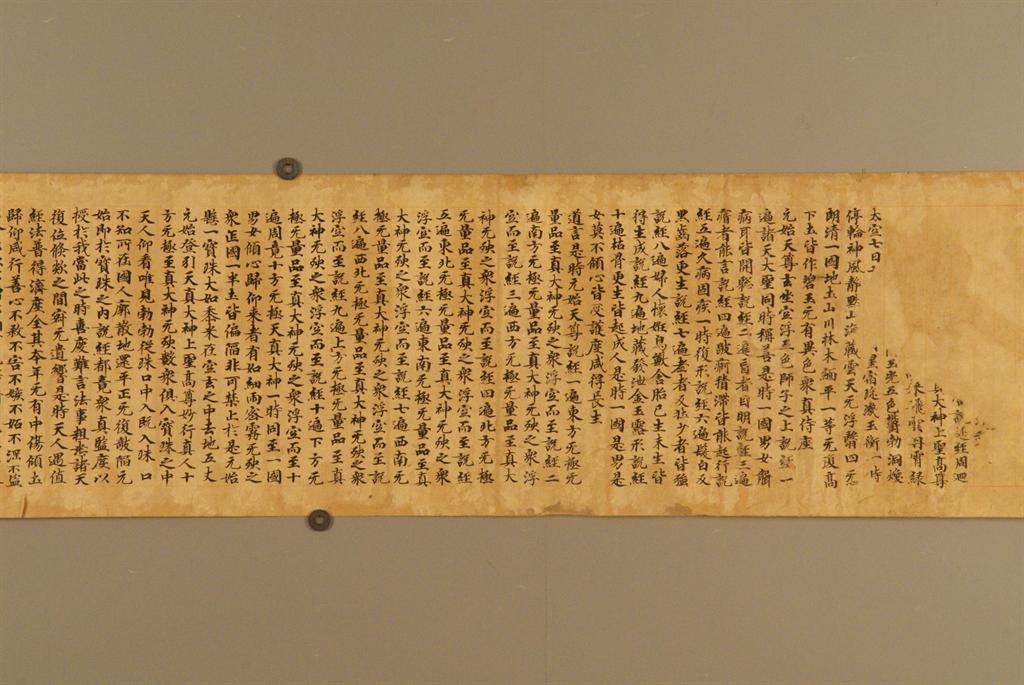 說是經周迴
真大神上聖高尊
乘飛雲丹霄綠
玉光五色鬱勃洞煥
太空七日 星宿璇璣玉衡一時
停輪神風靜默山海藏雲天无浮翳四炁
朗清一國地土山川林木緬平一等无復高
下土皆作碧玉无有異色眾真侍座
元始天尊玄坐空浮五色師子之上說經一
遍諸天大聖同時稱善是時一國男女聾
病耳皆開聰說經二遍盲者目明說經三遍
瘖者能言說經四遍跛痾積滯皆能起行說
經五遍久病固疾一時復形說經六遍髮白反
黑齒落更生說經七遍老者反壯少者皆強
說經八遍婦人懷姙鳥獸含胎已生未生皆
得生成說經九遍地藏發泄金玉露形說經
十遍枯骨更生皆起成人是時一國是男是
女莫不傾心皆受護度咸得長生
道言是時元始天尊說經一遍東方无極无
量品至真大神无殃之眾浮空而至說經二
遍南方无極无量品至真大神无殃之眾浮
空而至說經三遍西方无極无量品至真大
神无殃之眾浮空而至說經四遍北方无極
无量品至真大神无殃之眾浮空而至說經
五遍東北无極无量品至真大神无殃之眾
浮空而至說經六遍東南无極无量品至真
大神无殃之眾浮空而至說經七遍西南无
極无量品至真大神无殃之眾浮空而至說
經八遍西北无極无量品至真大神无殃之眾
浮空而至說經九遍上方无極无量品至真
大神无殃之眾浮空而至說經十遍下方无
極无量品至真大神无殃之眾浮空而至十
遍周竟十方无極至真大神一時同至一國
男女傾心歸仰來者有如細雨密霧无殃之
眾迮國一半土皆偏陷非可禁止於是元始
懸一寶珠大如黍米在空玄之中去地五丈
元始登引天真大神上聖高尊妙行真人十
方无極至真大神无殃數眾俱入寶珠之中
天人仰看唯見勃勃從珠口中入既入珠口
不知所在國人廓散地還平正无復欹陷元
始即於寶珠之內說經都竟眾真監度以
授於我當此之時喜慶難言法事粗悉諸天
復位倏欻之間寂无遺響是時天人遇值
經法普得濟度全其本年无有中傷傾土
歸仰咸行善心不殺不害不嫉不妬不淫不盜